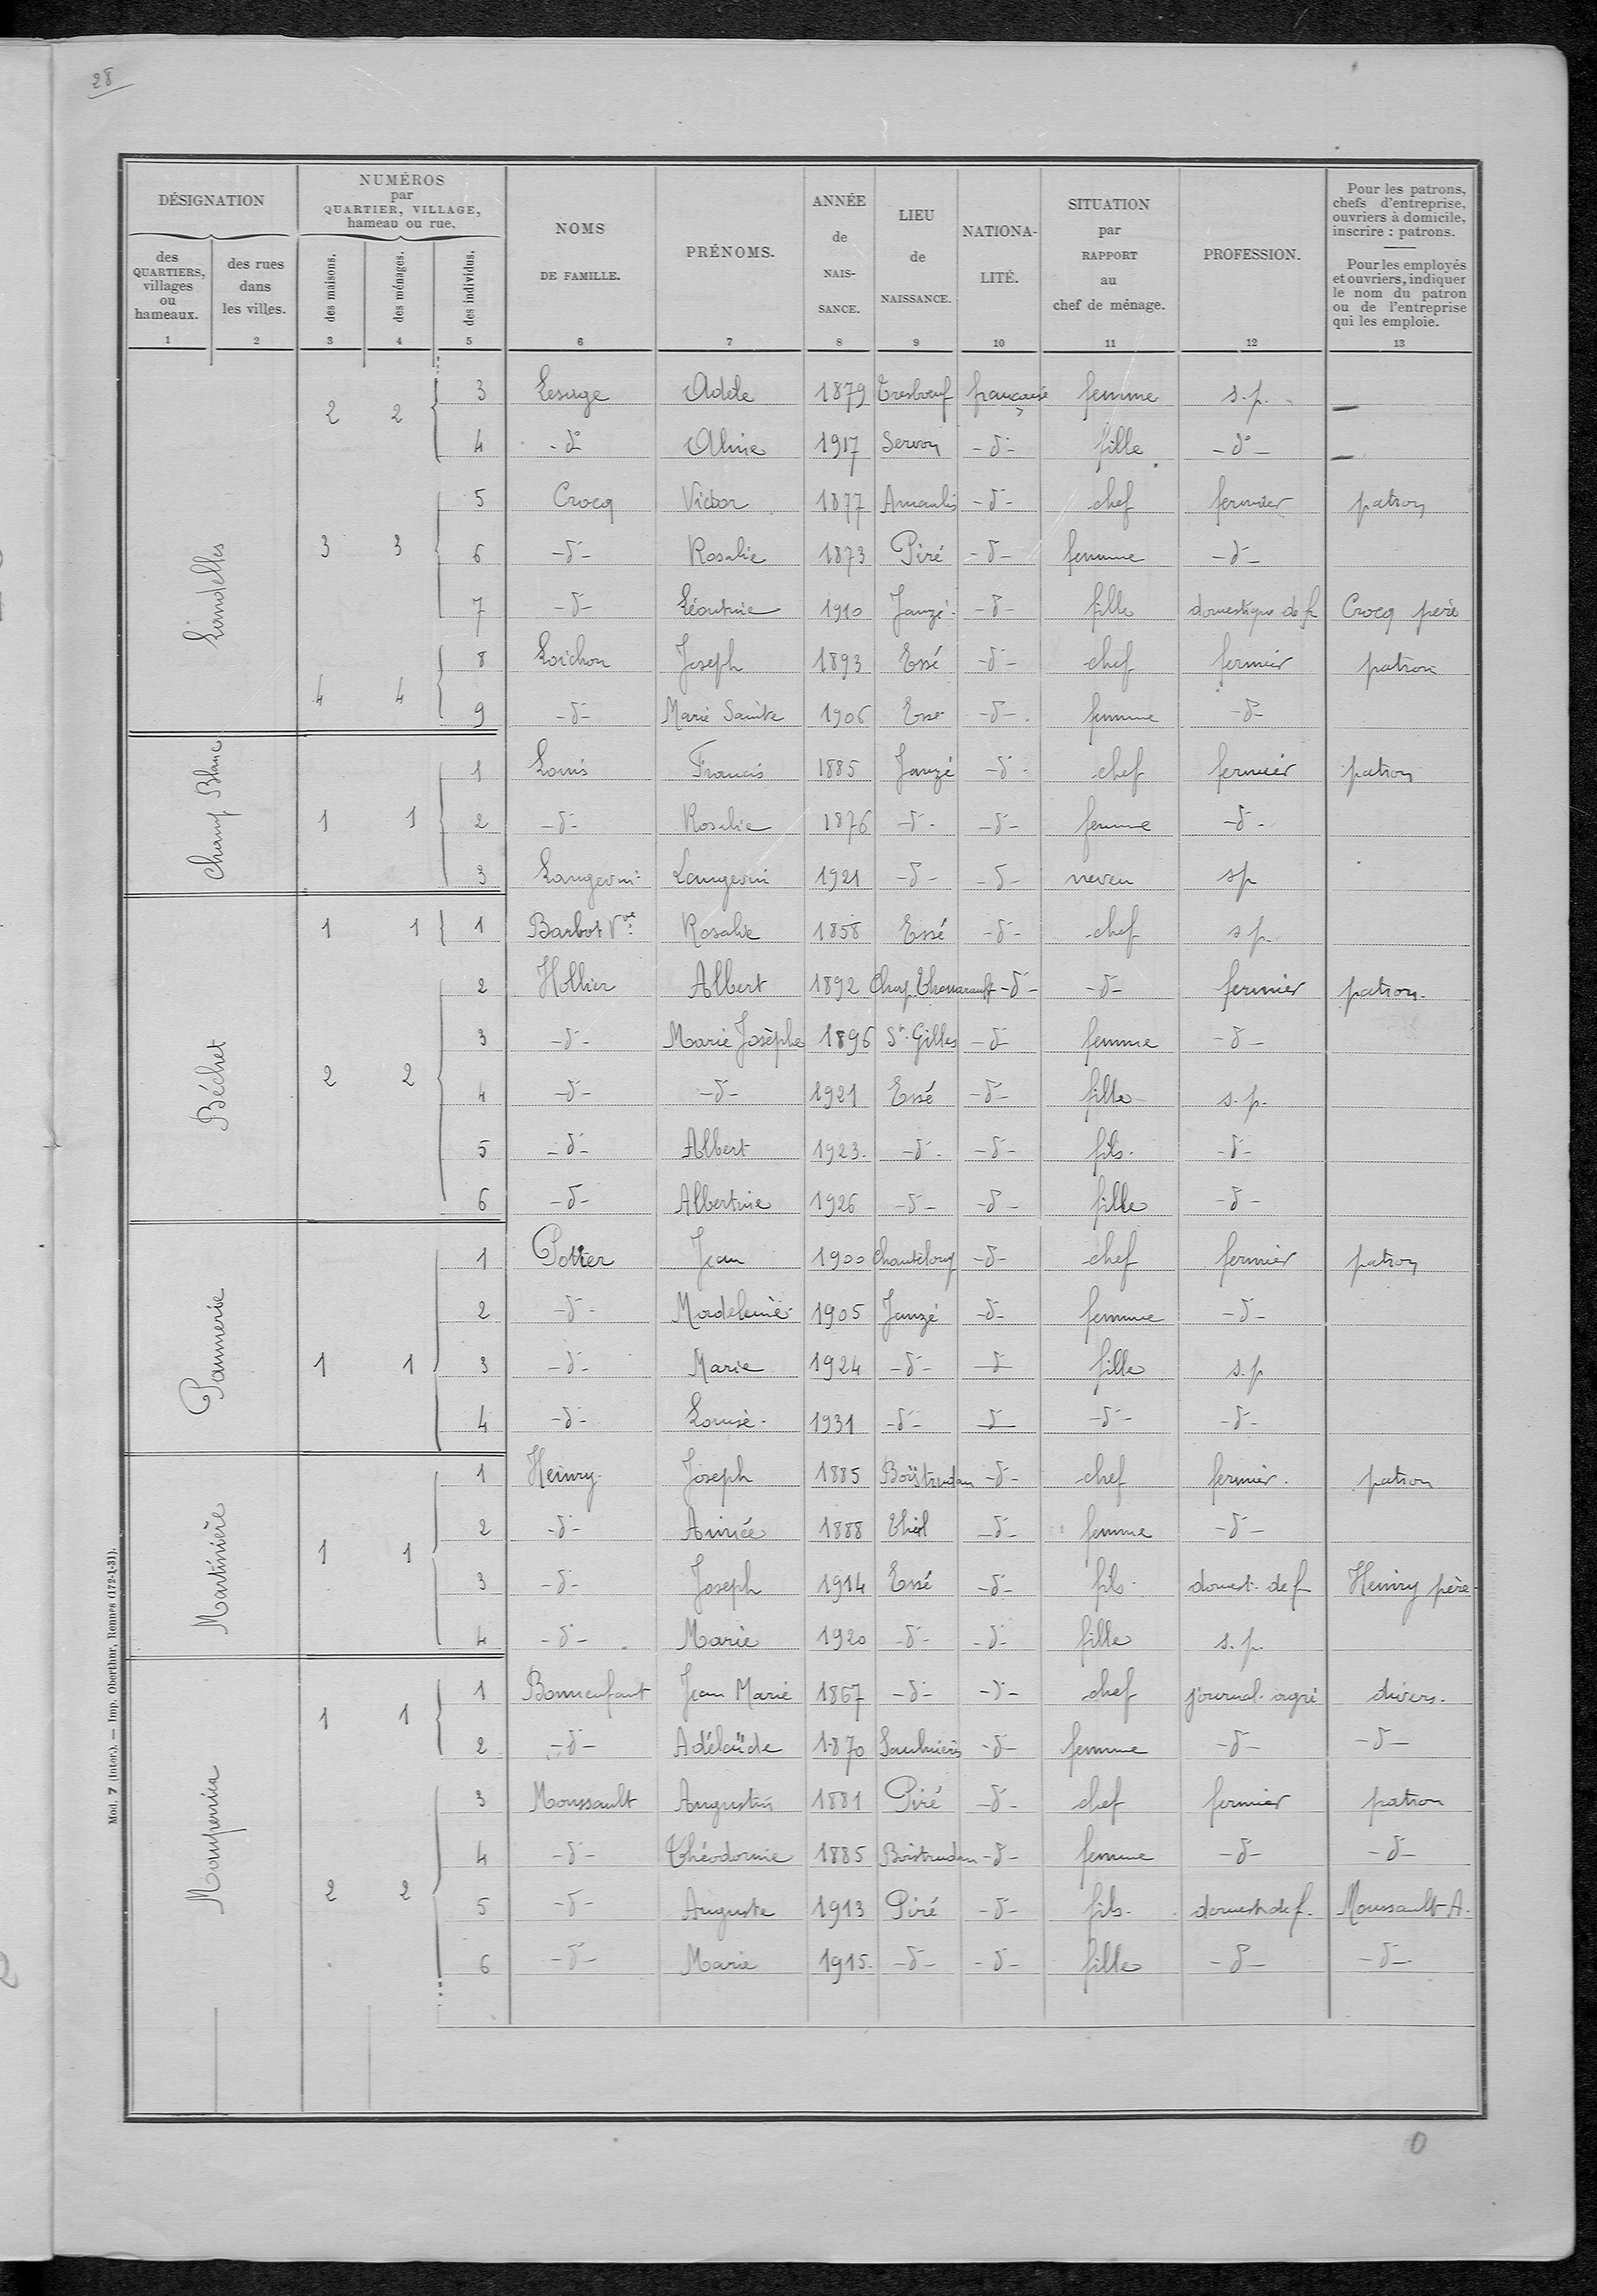 28
DÉSIGNATION
des QUARTIERS, villages ou hameaux.
des rues dans les villes.
NUMÉROS par QUARTIER, VILLAGE, hameau ou rue.
des maisons.
des ménages.
des individus.
NOMS DE FAMILLE.
PRÉNOMS.
ANNÉE de NAISSANCE.
LIEU de NAISSANCE.
NATIONALITÉ.
SITUATION par RAPPORT au chef de ménage.
PROFESSION.
Pour les patrons, chefs d'entreprise, ouvriers à domicile, inscrire : patrons.
Pour les employés et ouvriers, indiquer le nom du patron ou de l'entreprise qui les emploie.
1 2 3 4 5 6 7 8 9 10 11 12 13
Lindelles
2 2 3 Lesage Adèle 1879 Tresboeuf française femme s.p. —
4 -d°- Aline 1917 Servon -d- fille -d°- —
3 3 5 Crocq Victor 1877 Amanlis -d- chef fermier patron
6 -d- Rosalie 1873 Piré -d- femme -d-
7 -d- Léontine 1910 Janzé -d- fille domestique de f Crocq père
4 4 8 Loichon Joseph 1893 Essé -d- chef fermier patron
9 -d- Marie Sainte 1906 Essé -d- femme -d-
Champ Blanc
1 1 1 Louis Francis 1885 Janzé -d- chef fermier patron
2 -d- Rosalie 1876 -d- -d- femme -d-
3 Langevin Langevin 1921 -d- -d- neveu sp
Béchet
1 1 1 Barbot Vve Rosalie 1858 Essé -d- chef s p
2 2 2 Hollier Albert 1892 Chap. Thouarault -d- -d- fermier patron.
3 -d- Marie Josèphe 1896 St Gilles -d- femme -d-
4 -d- -d- 1921 Essé -d- fille s.p.
5 -d- Albert 1923. -d- -d- fils. -d-
6 -d- Albertine 1926 -d- -d- fille -d-
Paumerie
1 1 1 Potier Jean 1900 Chanteloup -d- chef fermier patron
2 -d- Madeleine 1905 Janzé -d- femme -d-
3 -d- Marie 1924 -d- -d- fille s.p
4 -d- Louise 1931 -d- -d- -d- -d-
Martinière
1 1 1 Heinry Joseph 1885 Boistrudan -d- chef fermier. patron
2 -d- Aimée 1888 Theil -d- femme -d-
3 -d- Joseph 1914 Essé -d- fils domest. de f Heinry père
4 -d- Marie 1920 -d- -d- fille s.p.
1 1 1 Bonnenfant Jean Marie 1867 -d- -d- chef journal. agri divers.
2 -d- Adélaïde 1870 Saulnières -d- femme -d- -d-
2 2 3 Moussault Augustin 1881 Piré -d- chef fermier patron
4 -d- Théodorine 1885 Boistrudan -d- femme -d- -d-
5 -d- Auguste 1913 Piré -d- fils. domest. de f. Moussault A.
6 -d- Marie 1915. -d- -d- fille -d- -d-
Mod. 7 (Intér.). — Imp. Oberthur, Rennes (172-1-31).
0